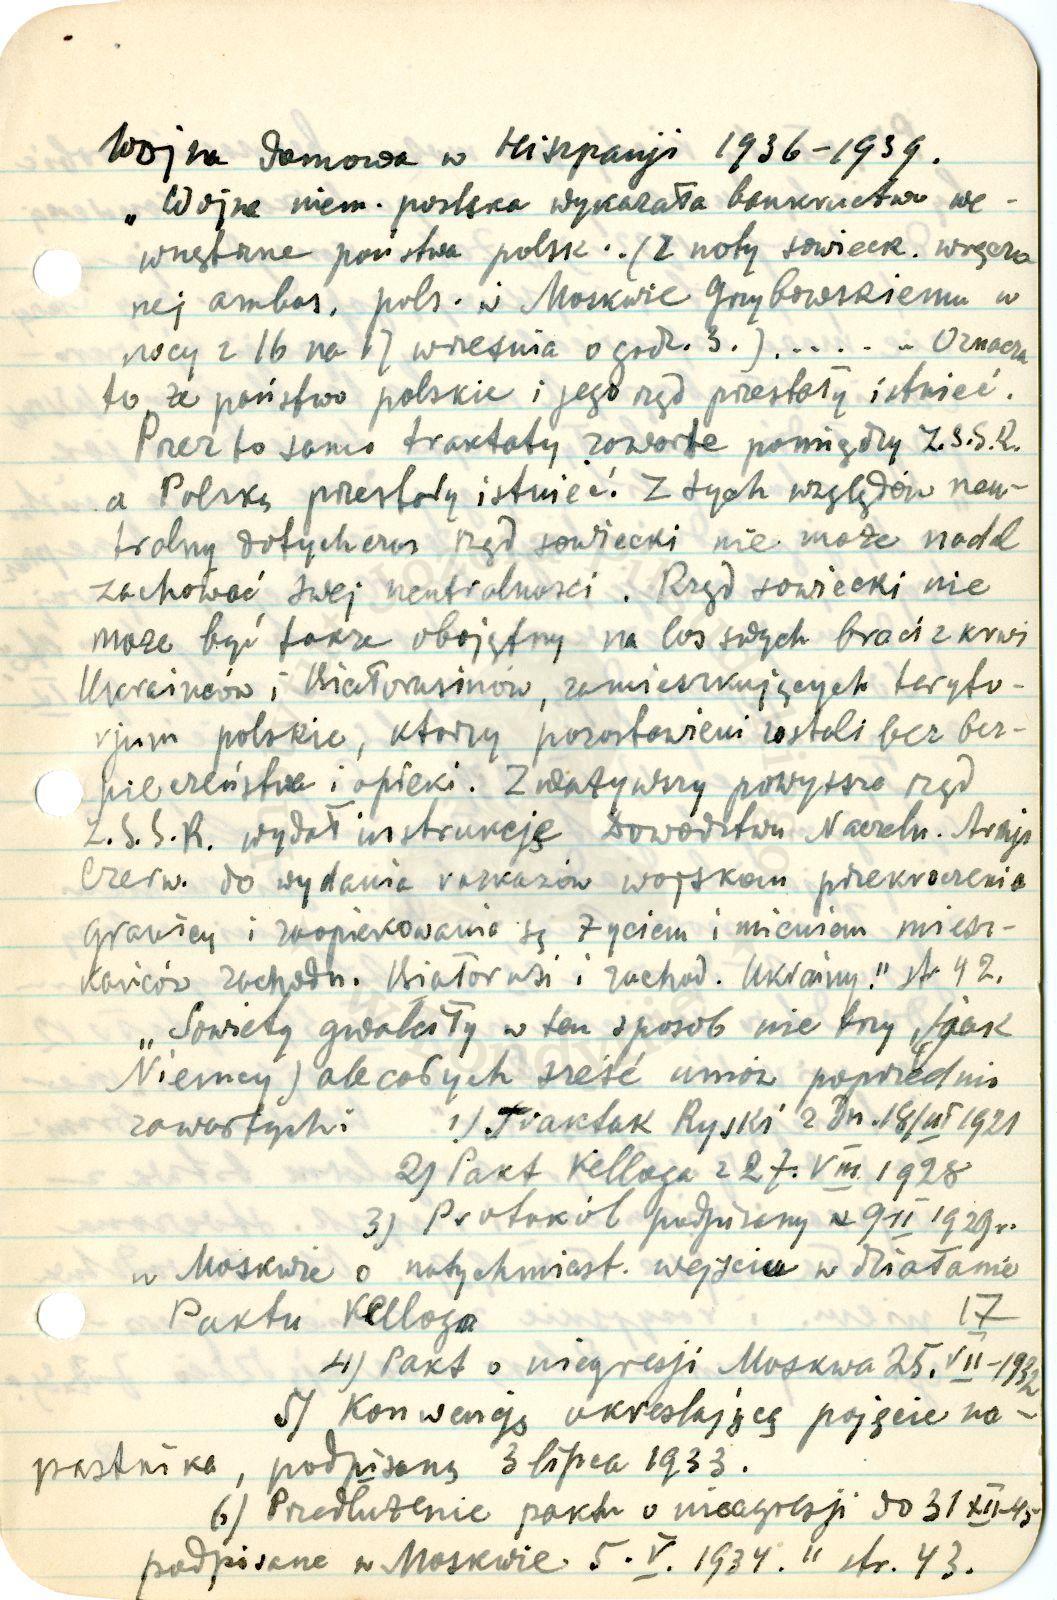 Wojna domowa w Hiszpanji 1936-1939.
„Wojna niem. polska wykazała bankructwo we-
wnętrzne państwa polsk.. (z noty sowieck. wręczo
nej ambas. pols. w Moskwie Grzybowskiemu w
nocy z 16 na 17 września o godz. 3.)...... Oznacza
to, że państwo polskie i jego rząd przestały istnieć.
Przez to samo traktaty zawarte pomiędzy Z.S.S.R.
a Polską przestały istnieć. Z tych względów neu-
tralny dotychczas rząd sowiecki nie może nadal
zachować swej neutralności. Rząd sowiecki nie
może być także obojętny na los swych braci z krwi
Ukraińców i Białorusinów, zamieszkujących teryto-
rjum polskie, którzy pozostawieni zostali bez bez-
pieczeństwa i opieki. Zważywszy powyższe rząd
Z.S.S.R. wydał instrukcję Dowództwu Naczeln. Armji
Czerw. do wydania rozkazów wojskom przekroczenia
granicy i zaopiekowania są życiem i mieniem miesz-
kańców zachodn. Białorusi i zachod. Ukrainy." str 42.
„Sowiety gwałciły w ten sposób nie trzy (jak
Niemcy) ale całych sześć umów poprzednio
zawartych: 1) Traktak Ryski z dn. 18/III 1921
2) Pakt Kelloga z 27. VIII 1928
3) Protokół podpisany 9 II 1929r.
w Moskwie o natychmiast. wejściu w działanie
Paktu Kelloga 17
4) Pakt o niegresji Moskwa 25. VII-1932
5) Konwencję określającą pojęcie na-
pastnika, podpisaną 3 lipca 1933.
6) Przedłużenie paktu o nieagresji do 31 XII-45
podpisane w Moskwie 5. V. 1934." str. 43.